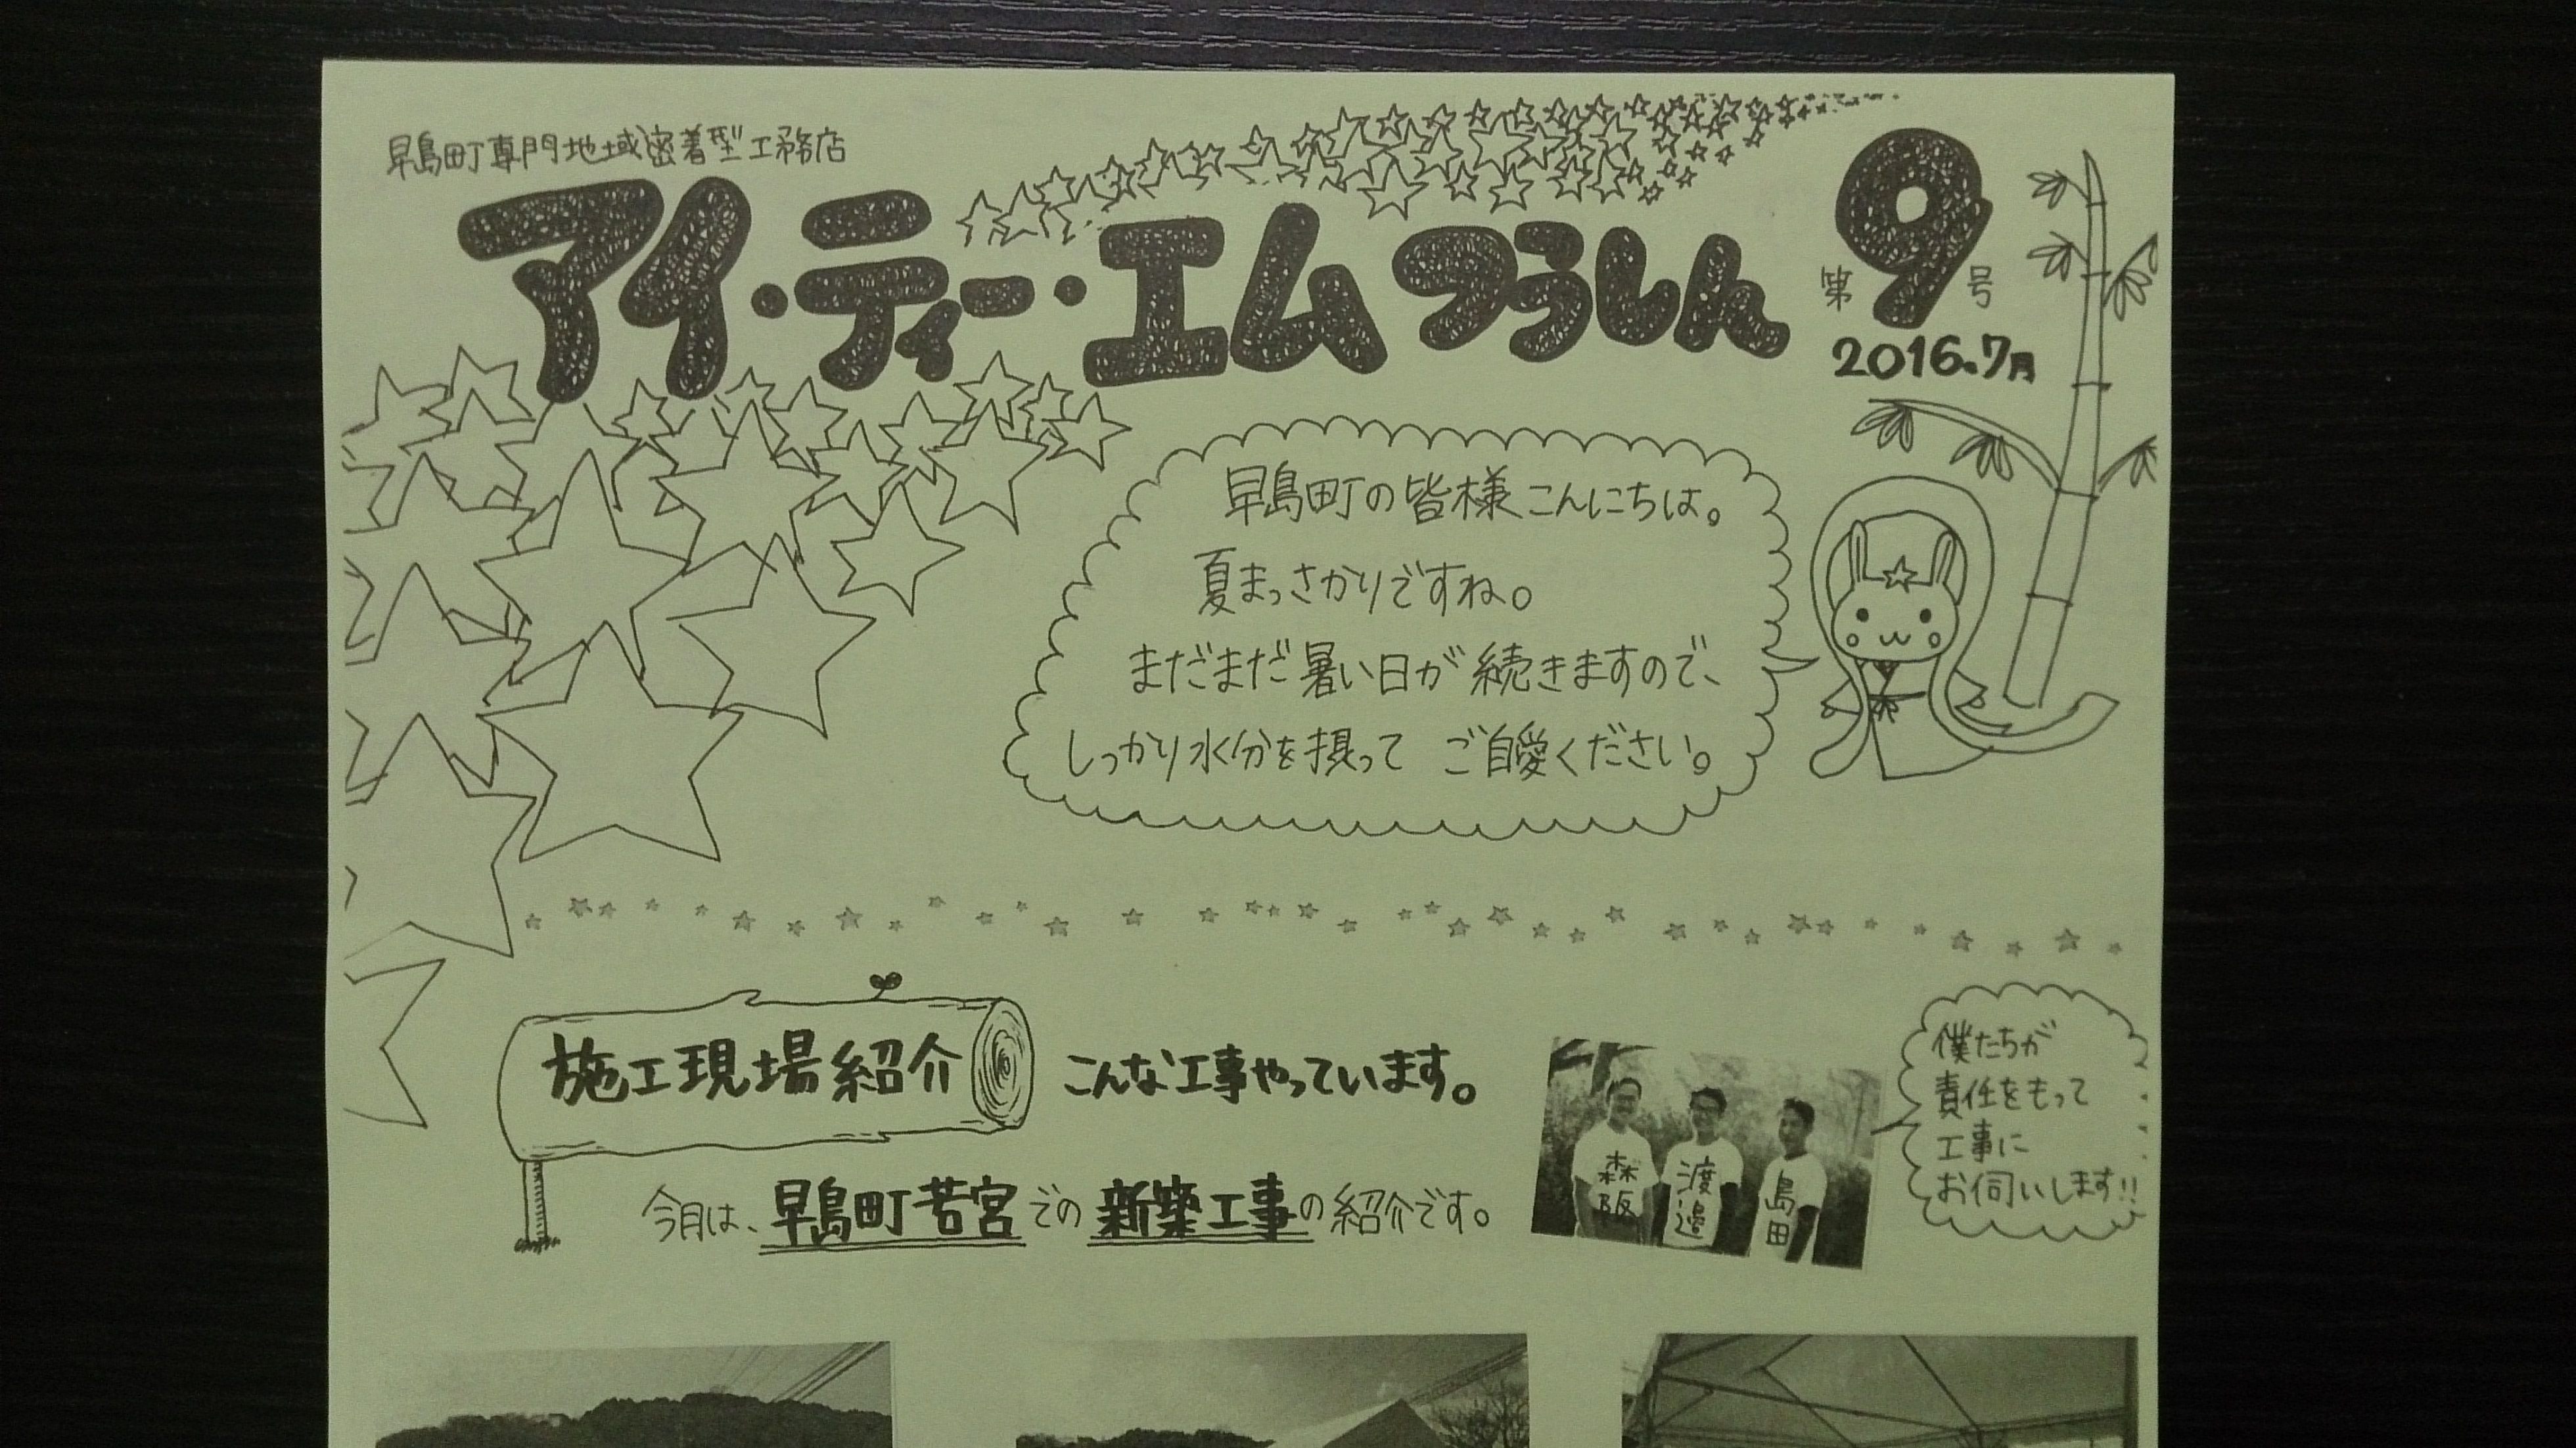 早島町専門地域密着型工務店
アイ・ティー・エムつうしん
第9号
2016.7月
早島町の皆様こんにちは。
夏まっさかりですね。
まだまだ暑い日が続きますので、
しっかり水分を摂って ご自愛ください。
施工現場紹介 こんな工事やっています。
今月は、早島町若宮での新築工事の紹介です。
森阪
渡邉
島田
僕たちが
責任をもって
工事に
お伺いします!!